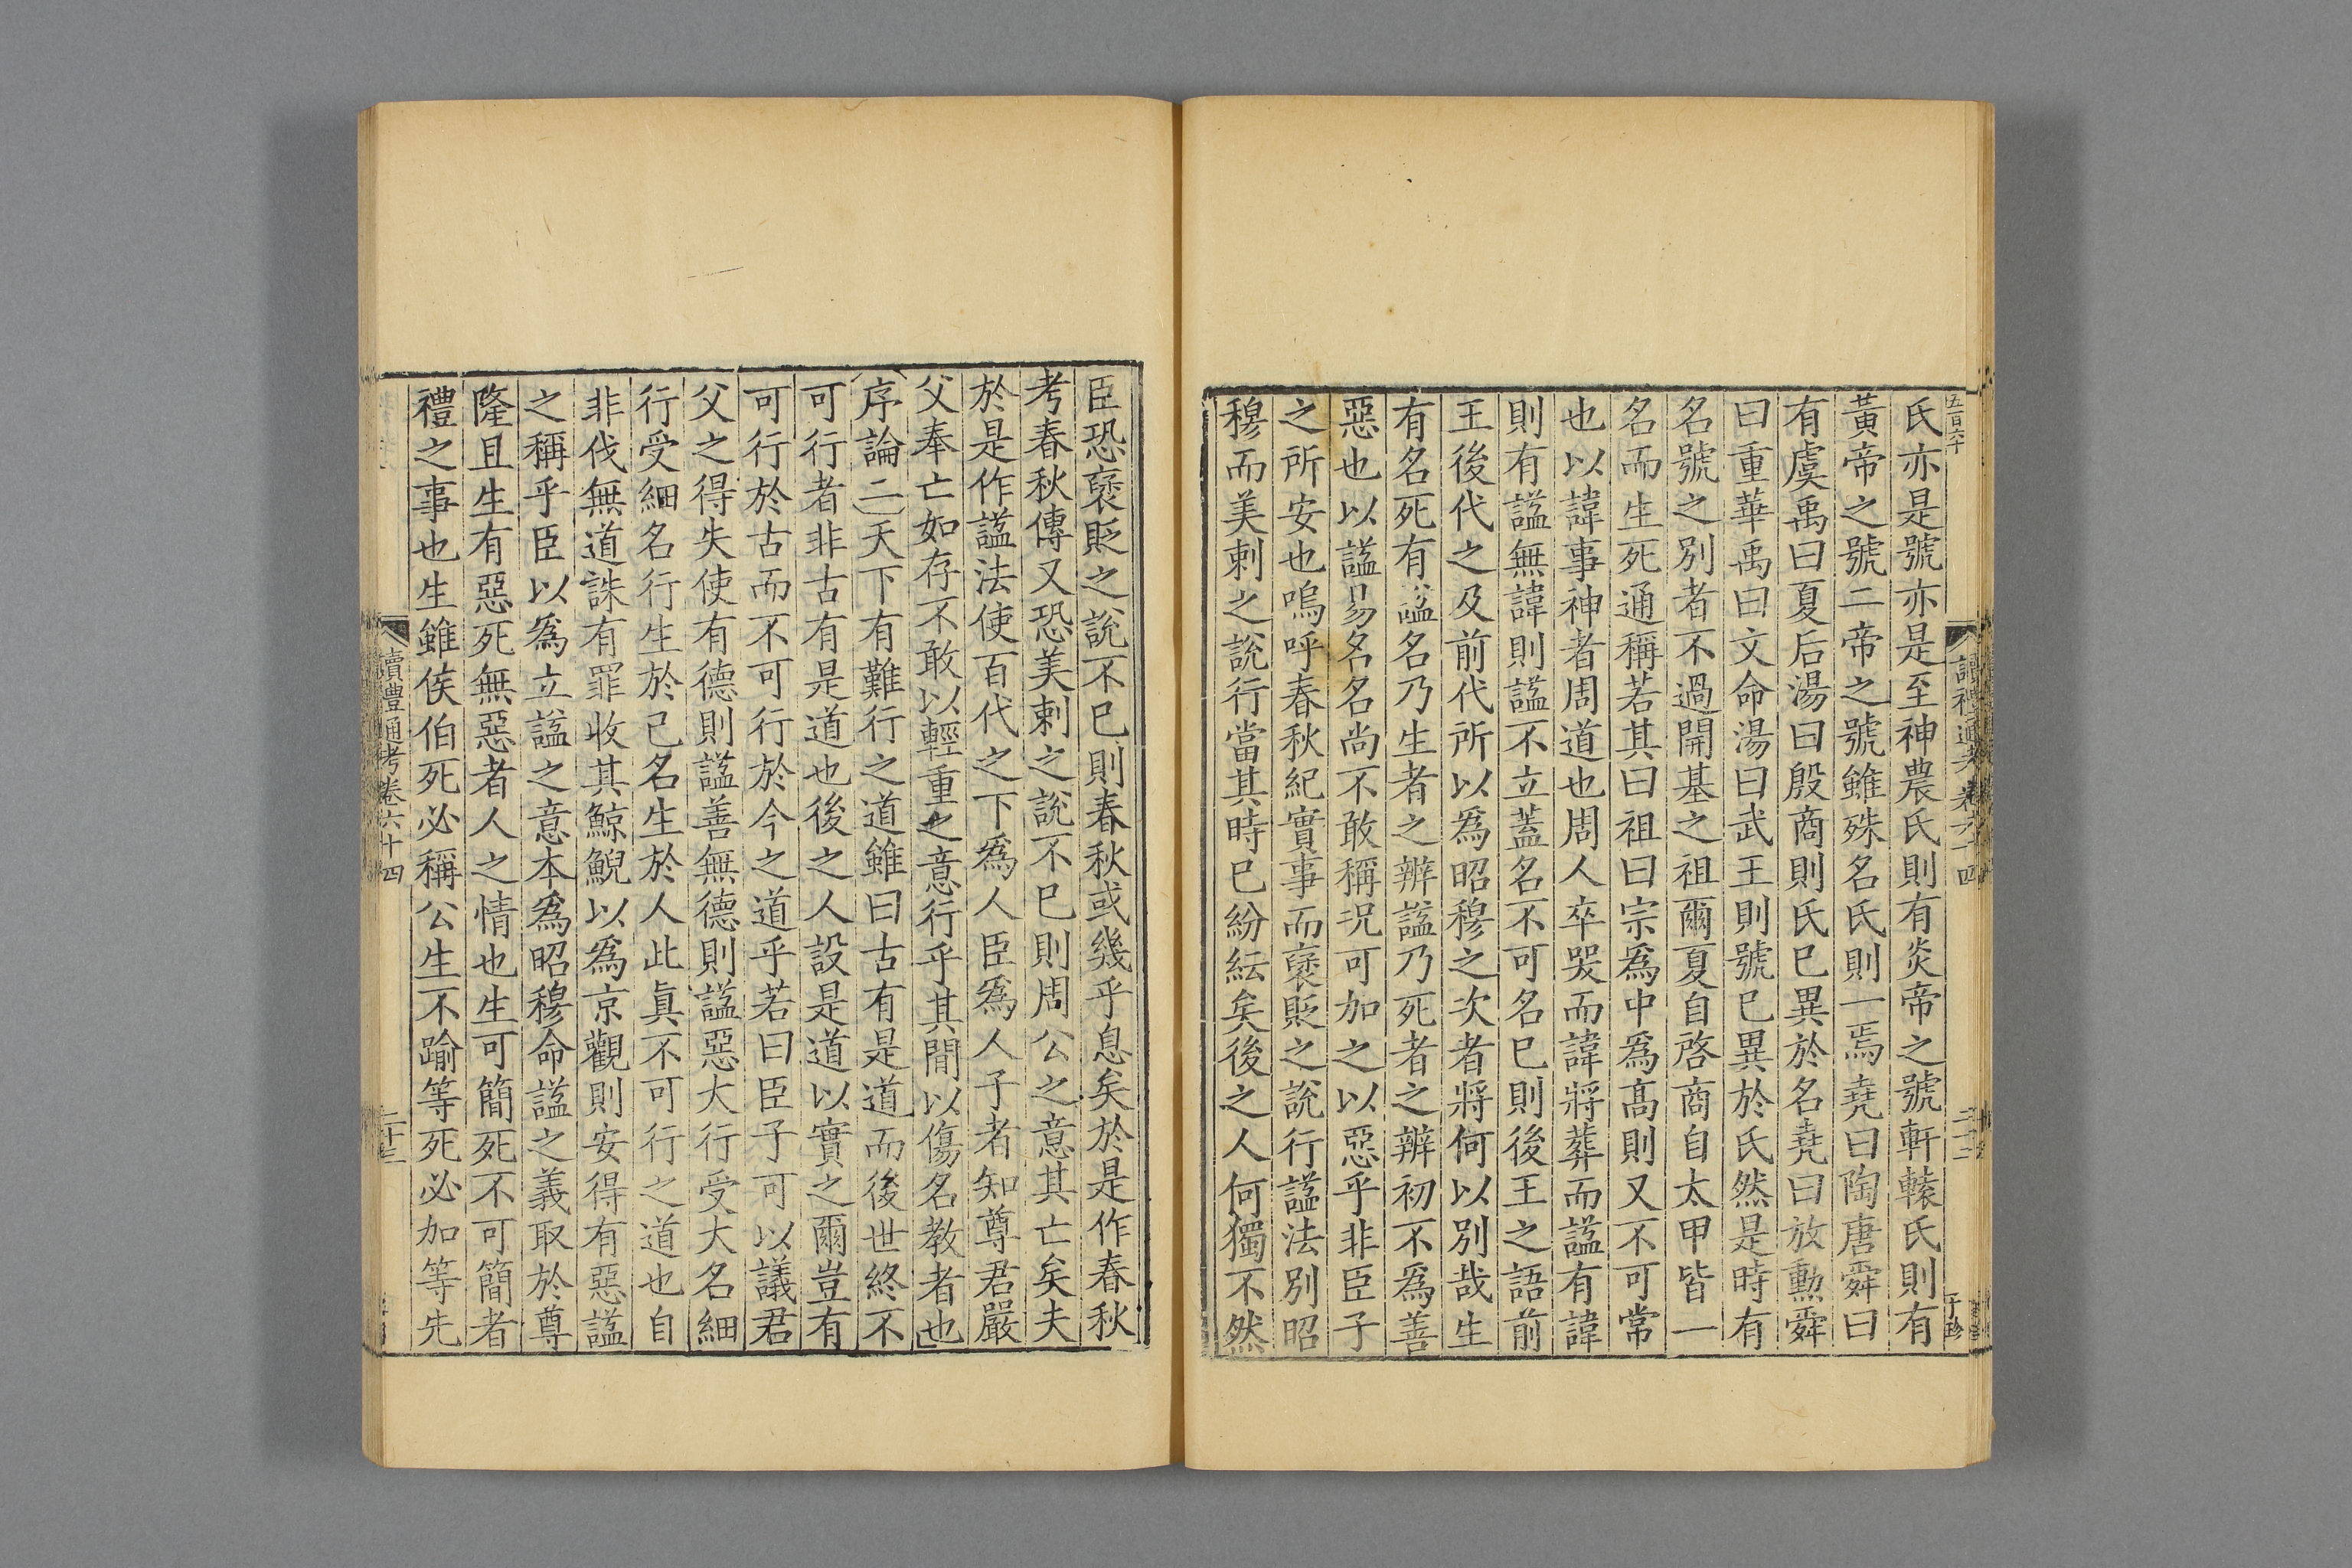 五百六十
氏亦是號亦是至神農氏則有炎帝之號軒轅氏則有
黃帝之號二帝之號雖殊名氏則一焉堯曰陶唐舜曰
有虞禹曰夏后湯曰殷商則氏已異於名堯曰放勲舜
曰重華禹曰文命湯曰武王則號已異於氏然是時有
名號之別者不過開基之祖爾夏自啓商自太甲皆一
名而生死通稱若其曰祖曰宗爲中爲髙則又不可常
也以諱事神者周道也周人卒哭而諱將葬而諡有諱
則有諡無諱則諡不立蓋名不可名已則後王之語前
王後代之及前代所以爲昭穆之次者將何以別哉生
有名死有諡名乃生者之辨諡乃死者之辨初不爲善
惡也以諡易名名尚不敢稱况可加之以惡乎非臣子
之所安也嗚呼春秋紀實事而襃貶之說行諡法別昭
穆而美剌之說行當其時已紛紜矣後之人何獨不然
臣恐襃貶之說不已則春秋或幾乎息矣於是作春秋
考春秋傳又恐美剌之說不已則周公之意其亡矣夫
於是作諡法使百代之下爲人臣爲人子者知尊君嚴
父奉亡如存不敢以輕重之意行乎其間以傷名教者也
序論二天下有難行之道雖曰古有是道而後世終不
可行者非古有是道也後之人設是道以實之爾豈有
可行於古而不可行於今之道乎若曰臣子可以議君
父之得失使有德則諡善無德則諡惡大行受大名細
行受細名行生於己名生於人此眞不可行之道也自
非伐無道誅有罪收其鯨鯢以爲京觀則安得有惡諡
之稱乎臣以爲立諡之意本爲昭穆命諡之義取於尊
隆且生有惡死無惡者人之情也生可簡死不可簡者
禮之事也生雖侯伯死必稱公生不踰等死必加等先
讀禮通考卷六十四
二十三